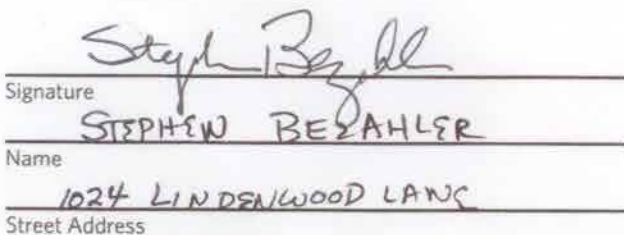 Stephen Bezahler
Signature
STEPHEN BEZAHLER
Name
1024 LINDENWOOD LANE
Street Address